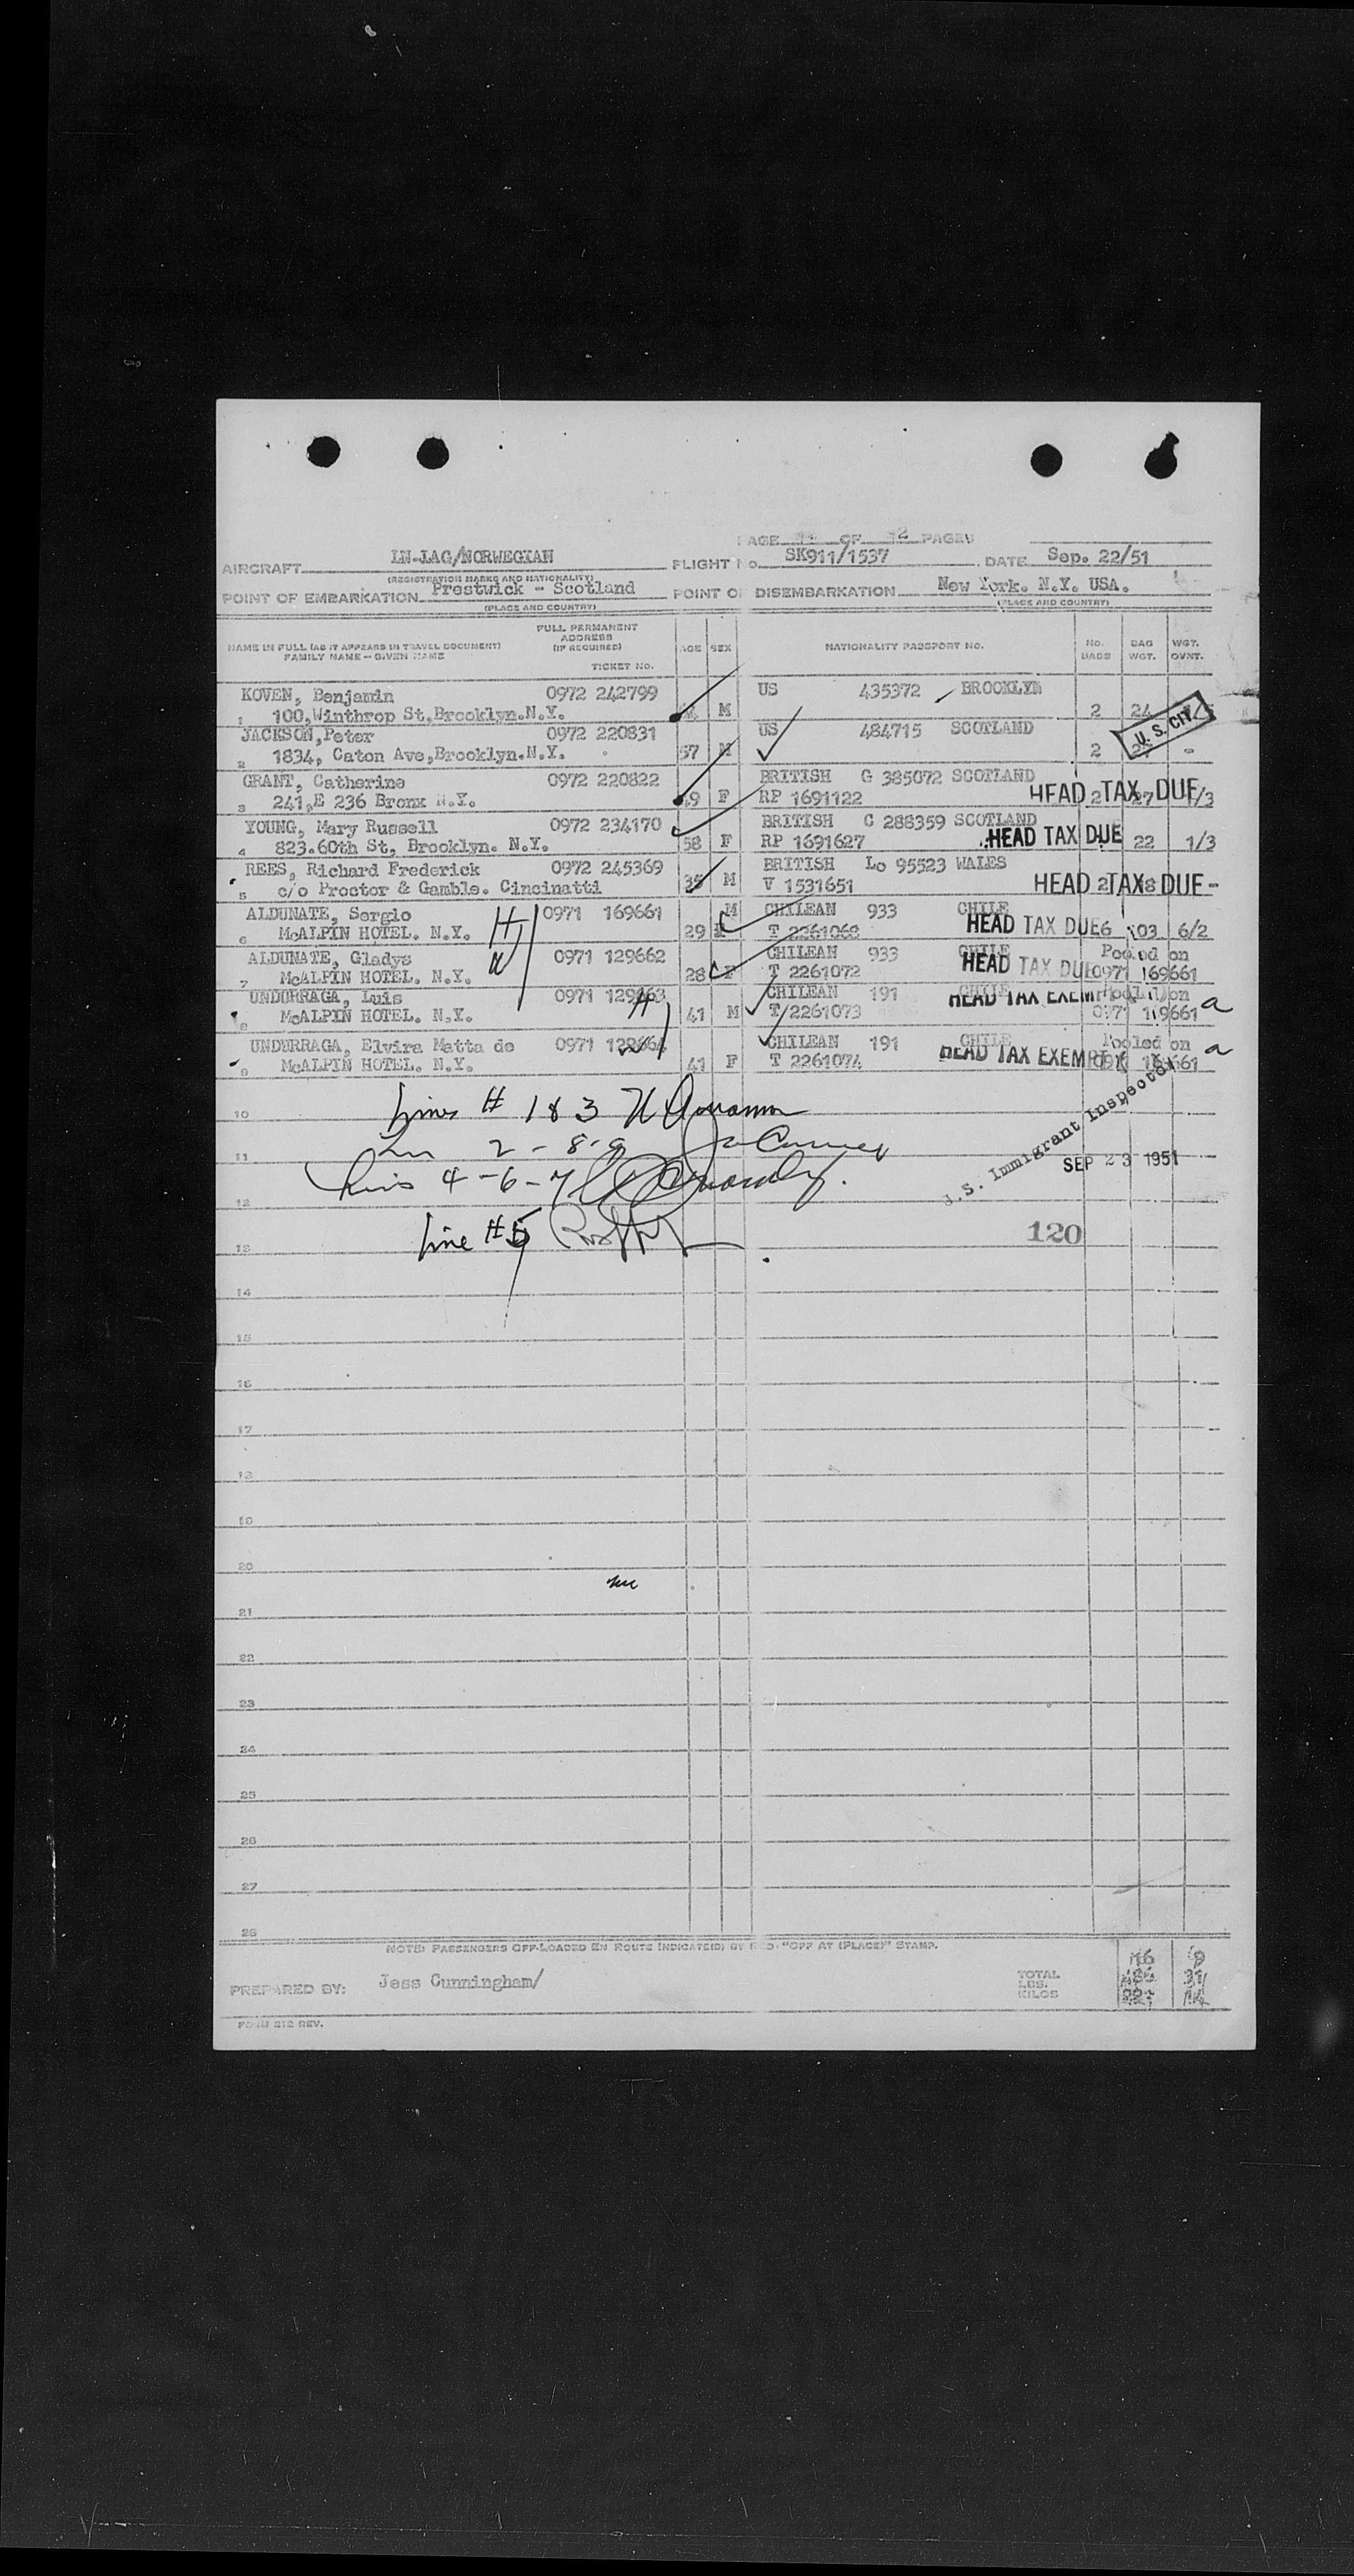 PAGE OF 12 PAGES
AIRCRAFT LN-LAG/NORWEGIAN FLIGHT No. SK911/1537 DATE Sep. 22/51
(REGISTRATION MARKS AND NATIONALITY)
POINT OF EMBARKATION Prestwick - Scotland POINT OF DISEMBARKATION New York. N.Y. USA.
(PLACE AND COUNTRY) (PLACE AND COUNTRY)
NAME IN FULL (AS IT APPEARS IN TRAVEL DOCUMENT) FAMILY NAME - GIVEN NAME FULL PERMANENT ADDRESS (IF REQUIRED) TICKET NO. AGE SEX NATIONALITY PASSPORT NO. No. BAGS BAG WGT. WGT. OVWT.
KOVEN, Benjamin 0972 242799 US 435372 BROOKLYN
1 100,Winthrop St,Brooklyn.N.Y. M 2 24
JACKSON,Peter 0972 220831 US 484715 SCOTLAND U.S. CIT.
2 1834, Caton Ave,Brooklyn.N.Y. 57 M 2 -
GRANT, Catherine 0972 220822 BRITISH G 385072 SCOTLAND
3 241,E 236 Bronx N.Y. 49 F RP 1691122 HEAD TAX DUE 2 27 1/3
YOUNG, Mary Russell 0972 234170 BRITISH C 288359 SCOTLAND
4 823.60th St, Brooklyn. N.Y. 58 F RP 1691627 HEAD TAX DUE 22 1/3
REES, Richard Frederick 0972 245369 BRITISH Lo 95523 WALES
5 c/o Proctor & Gamble. Cincinatti 35 M V 1531651 HEAD TAX DUE 2 18 -
ALDUNATE, Sergio H 0971 169661 M CHILEAN 933 CHILE
6 McALPIN HOTEL. N.Y. 29 T 2261068 HEAD TAX DUE 6 103 6/2
ALDUNATE, Gladys W 0971 129662 CHILEAN 933 CHILE Pooled on
7 McALPIN HOTEL. N.Y. 28 F T 2261072 HEAD TAX DUE 0971 169661
UNDURRAGA, Luis 0971 129663 H CHILEAN 191 CHILE Pooled on
8 McALPIN HOTEL. N.Y. 41 M T 2261073 HEAD TAX EXEMPT 0971 169661 a
UNDURRAGA, Elvira Matta de 0971 129664 W CHILEAN 191 CHILE Pooled on
9 McALPIN HOTEL. N.Y. 41 F T 2261074 HEAD TAX EXEMPT 0971 169661 a
Lines # 1 & 3
10
2 - 8-9
11
U.S. Immigrant Inspector
SEP 23 1951
Lines 4-6-7
12
Line #5
120
13
14
15
16
17
18
19
20
21
22
23
24
25
26
27
28
NOTE: PASSENGERS OFF-LOADED EN ROUTE INDICATE(D) BY RED "OFF AT (PLACE)" STAMP.
PREPARED BY: Jess Cunningham/ TOTAL LBS. KILOS
FORM 212 REV.